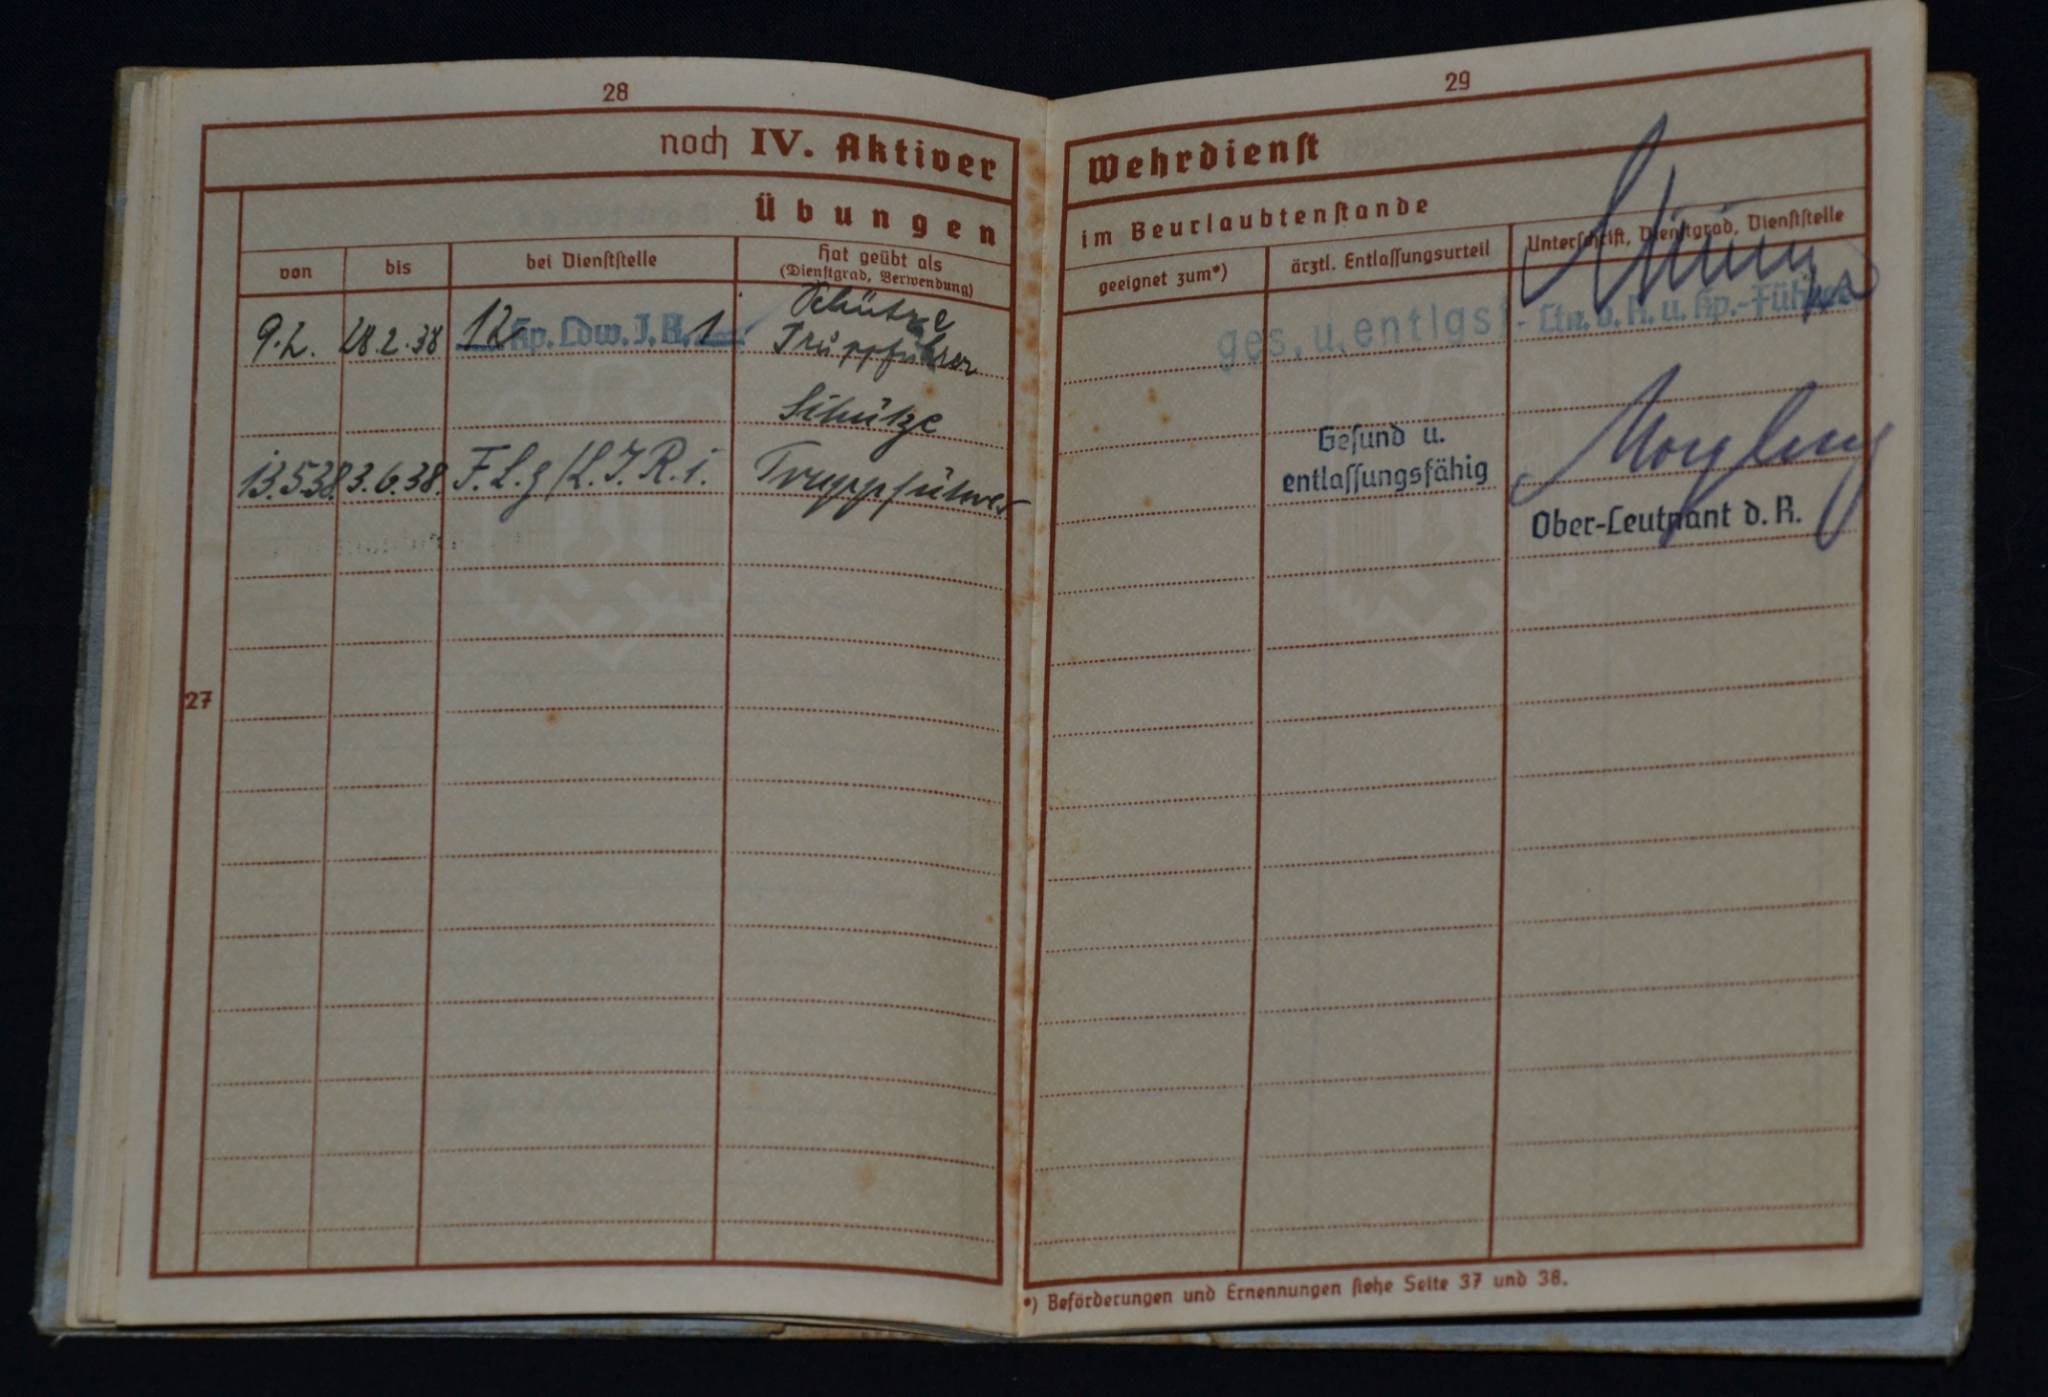 28
noch IV. Aktiver
Übungen
von
bis
bei Dienststelle
Hat geübt als
(Dienstgrad, Verwendung)
9.2.
28.2.38
12 Kp. Ldw. J. R. 1
Schütze
Truppführer
Schütze
13.5.38
3.6.38.
F.L.g/L.J.R.1.
Truppführer
27
29
Wehrdienst
im Beurlaubtenstande
geeignet zum*)
ärztl. Entlassungsurteil
Unterschrift, Dienstgrad, Dienststelle
ges. u. entlgsf.
Ltn. d. R. u. Kp.-Führer
Gesund u.
entlassungsfähig
Ober-Leutnant d. R.
*) Beförderungen und Ernennungen siehe Seite 37 und 38.